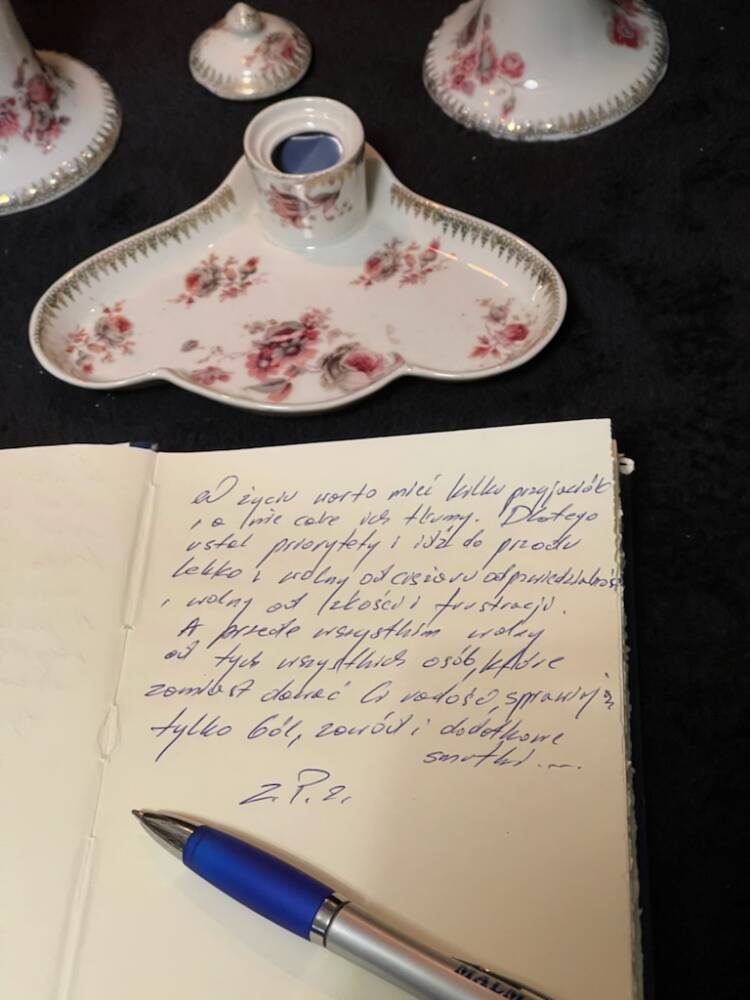 W życiu warto mieć kilku przyjaciół
, a nie całe ich tłumy. Dlatego
ustal priorytety i idź do przodu
lekko i wolny od ciężaru odpowiedzialności
, wolny od złości i frustracji.
A przede wszystkim wolny
od tych wszystkich osób, które
zamiast dawać Ci radość, sprawiają
tylko ból, zawód i dodatkowe
smutki....
Z.P.Z.